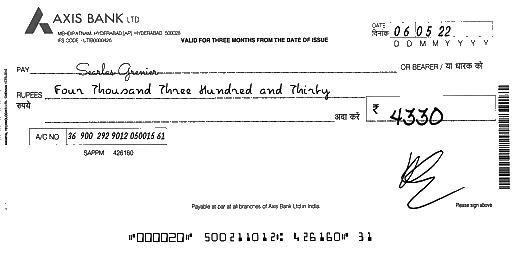 AXIS BANK LTD
MEHDIPATNAM, HYDERABAD [AP] HYDERABAD 500028
IFS CODE - UTIB0000426
VALID FOR THREE MONTHS FROM THE DATE OF ISSUE
DATE
दिनांक 06 05 22
D D M M Y Y Y Y
PAY Searlas Grenier OR BEARER / या धारक को
RUPEES Four Thousand Three Hundred and Thirty
रुपये अदा करें ₹ 4330
A/C NO 36 900 292 9012 050015 61
SAPPM 426160
Payable at par at all branches of Axis Bank Ltd in India.
Please sign above
⑈000020⑈ 500211012⑆ 426160⑈ 31